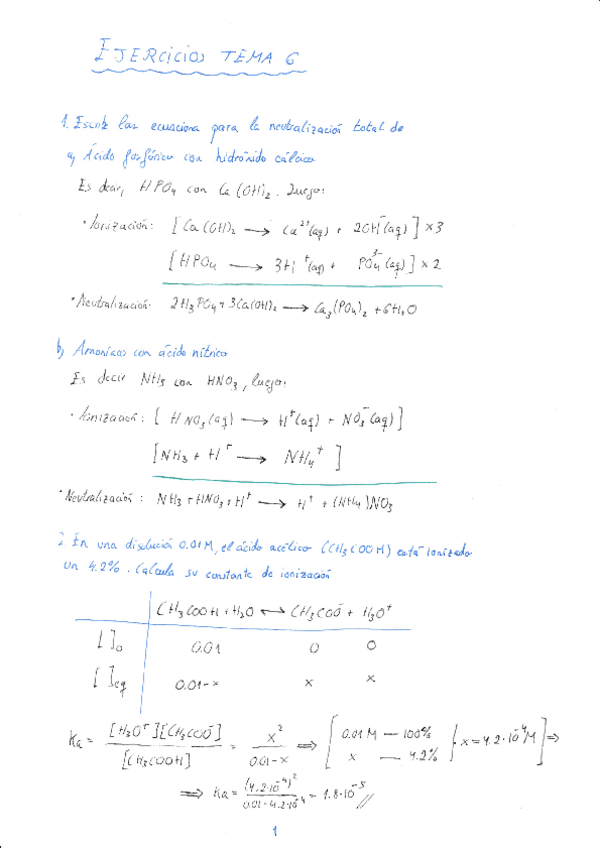 EJERCICIOS TEMA 6
1. Escribe las ecuaciones para la neutralización total de
a) Ácido fosfórico con hidróxido cálcico
Es decir, HPO4 con Ca(OH)2. Luego:
· Ionización: [Ca(OH)2 ⟶ Ca2+(aq) + 2OH-(aq)] x3
[HPO4 ⟶ 3H+(aq) + PO4 3-(aq)] x2
· Neutralización: 2H3PO4 + 3Ca(OH)2 ⟶ Ca3(PO4)2 + 6H2O
b) Amoníaco con ácido nítrico
Es decir NH3 con HNO3, luego:
· Ionización: [HNO3(aq) ⟶ H+(aq) + NO3-(aq)]
[NH3 + H+ ⟶ NH4+]
· Neutralización: NH3 + HNO3 + H+ ⟶ H+ + (NH4)NO3
2. En una disolución 0.01M, el ácido acético (CH3COOH) está ionizado
un 4.2%. Calcula su constante de ionización
CH3COOH + H2O ⟷ CH3COO- + H3O+
[ ]o 0.01 0 0
[ ]eq 0.01-x x x
Ka = [H3O+][CH3COO-] / [CH3COOH] = x2 / 0.01-x ⟹ [0.01M — 100% x — 4.2% } x = 4.2·10-4M] ⟹
⟹ Ka = (4.2·10-4)2 / 0.01-4.2·10-4 = 1.8·10-5 //
1